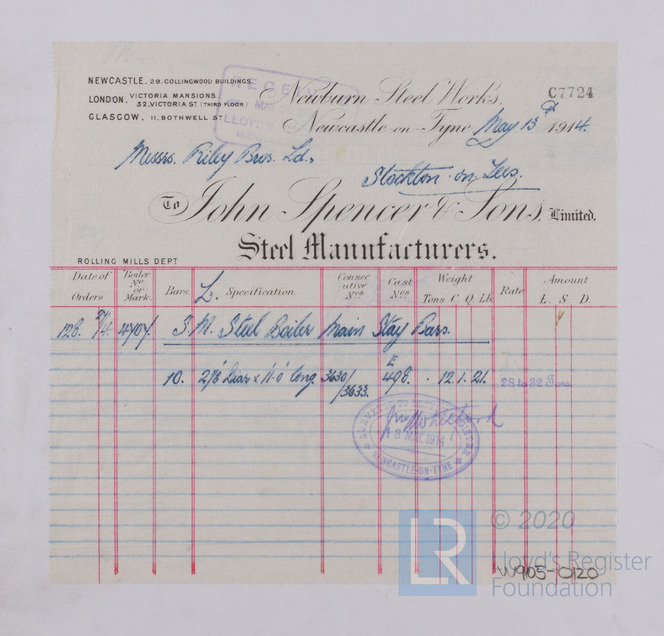 NEWCASTLE. 29, COLLINGWOOD BUILDINGS.
LONDON. VICTORIA MANSIONS, 32, VICTORIA ST (THIRD FLOOR)
GLASGOW. 11, BOTHWELL ST
RECEIVED
MAY
LLOYD'S
Newburn Steel Works,
C7724
Newcastle-on-Tyne May 13th 1914.
Messrs. Riley Bros. Ld.,
Stockton-on-Tees.
To John Spencer & Sons, Limited.
Steel Manufacturers.
ROLLING MILLS DEPT
Date of Orders
Boiler No or Mark.
Bars.
L. Specification
Consecutive Nos.
Cast Nos.
Weight
Tons. C. Q. Lb.
Rate
Amount
£. S. D.
128. 4707 S.M. Steel Boiler Main Stay Bars.
10. 2⅞ Diar x 11'0" long. 3630/3633. E 498. . 12. 1. 21. 28 to 32 Tons.
8 MAY. 1914
NEWCASTLE-ON-TYNE
LR
© 2020
Lloyd's Register
Foundation
W905-0120